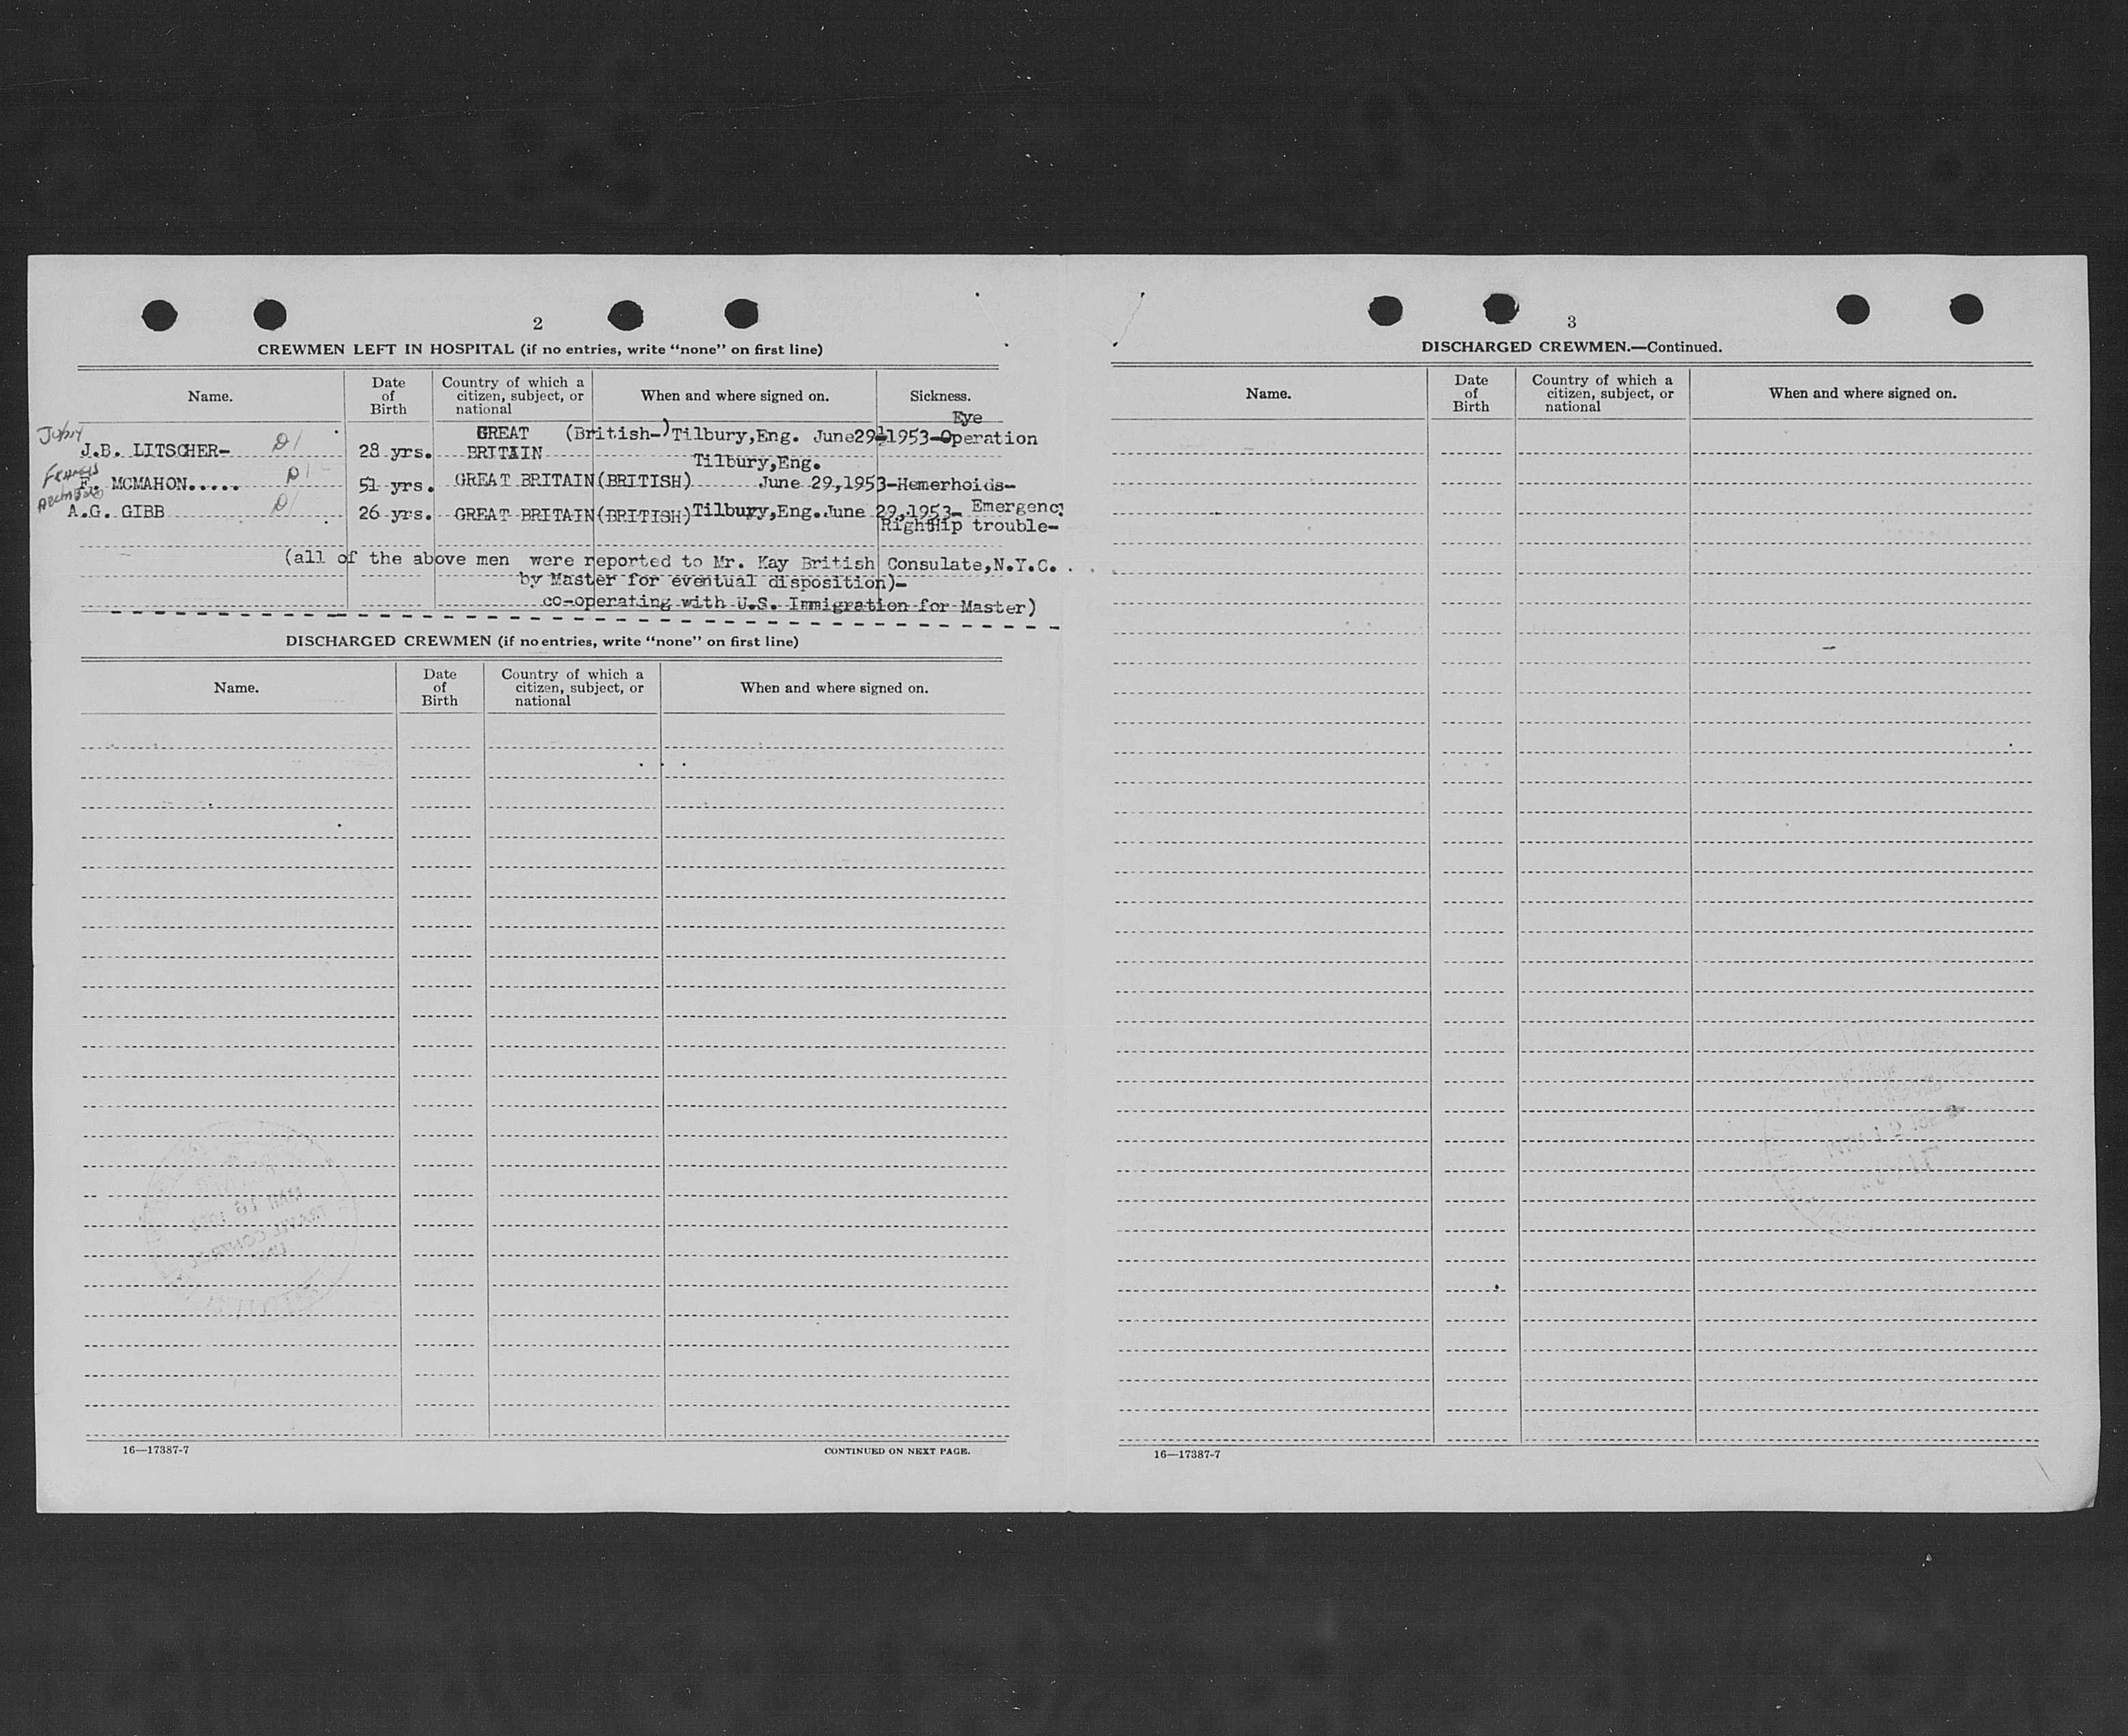 2
CREWMEN LEFT IN HOSPITAL (if no entries, write "none" on first line)
Name.
Date of Birth
Country of which a citizen, subject, or national
When and where signed on.
Sickness.
John
J.B. LITSCHER- D1 28 yrs. GREAT BRITAIN (British-) Tilbury,Eng. June29-1953-Eye Operation
Francis
F. MCMAHON..... D1 51 yrs. GREAT BRITAIN (BRITISH) Tilbury,Eng. June 29,1953-Hemerhoids-
A.G. GIBB D1 26 yrs. GREAT BRITAIN (BRITISH) Tilbury,Eng. June 29,1953- Emergency
RightHip trouble-
(all of the above men were reported to Mr. Kay British Consulate,N.Y.C.
by Master for eventual disposition)-
co-operating with U.S. Immigration for Master)
DISCHARGED CREWMEN (if no entries, write "none" on first line)
Name.
Date of Birth
Country of which a citizen, subject, or national
When and where signed on.
16—17387-7
CONTINUED ON NEXT PAGE.
3
DISCHARGED CREWMEN.—Continued.
Name.
Date of Birth
Country of which a citizen, subject, or national
When and where signed on.
16—17387-7